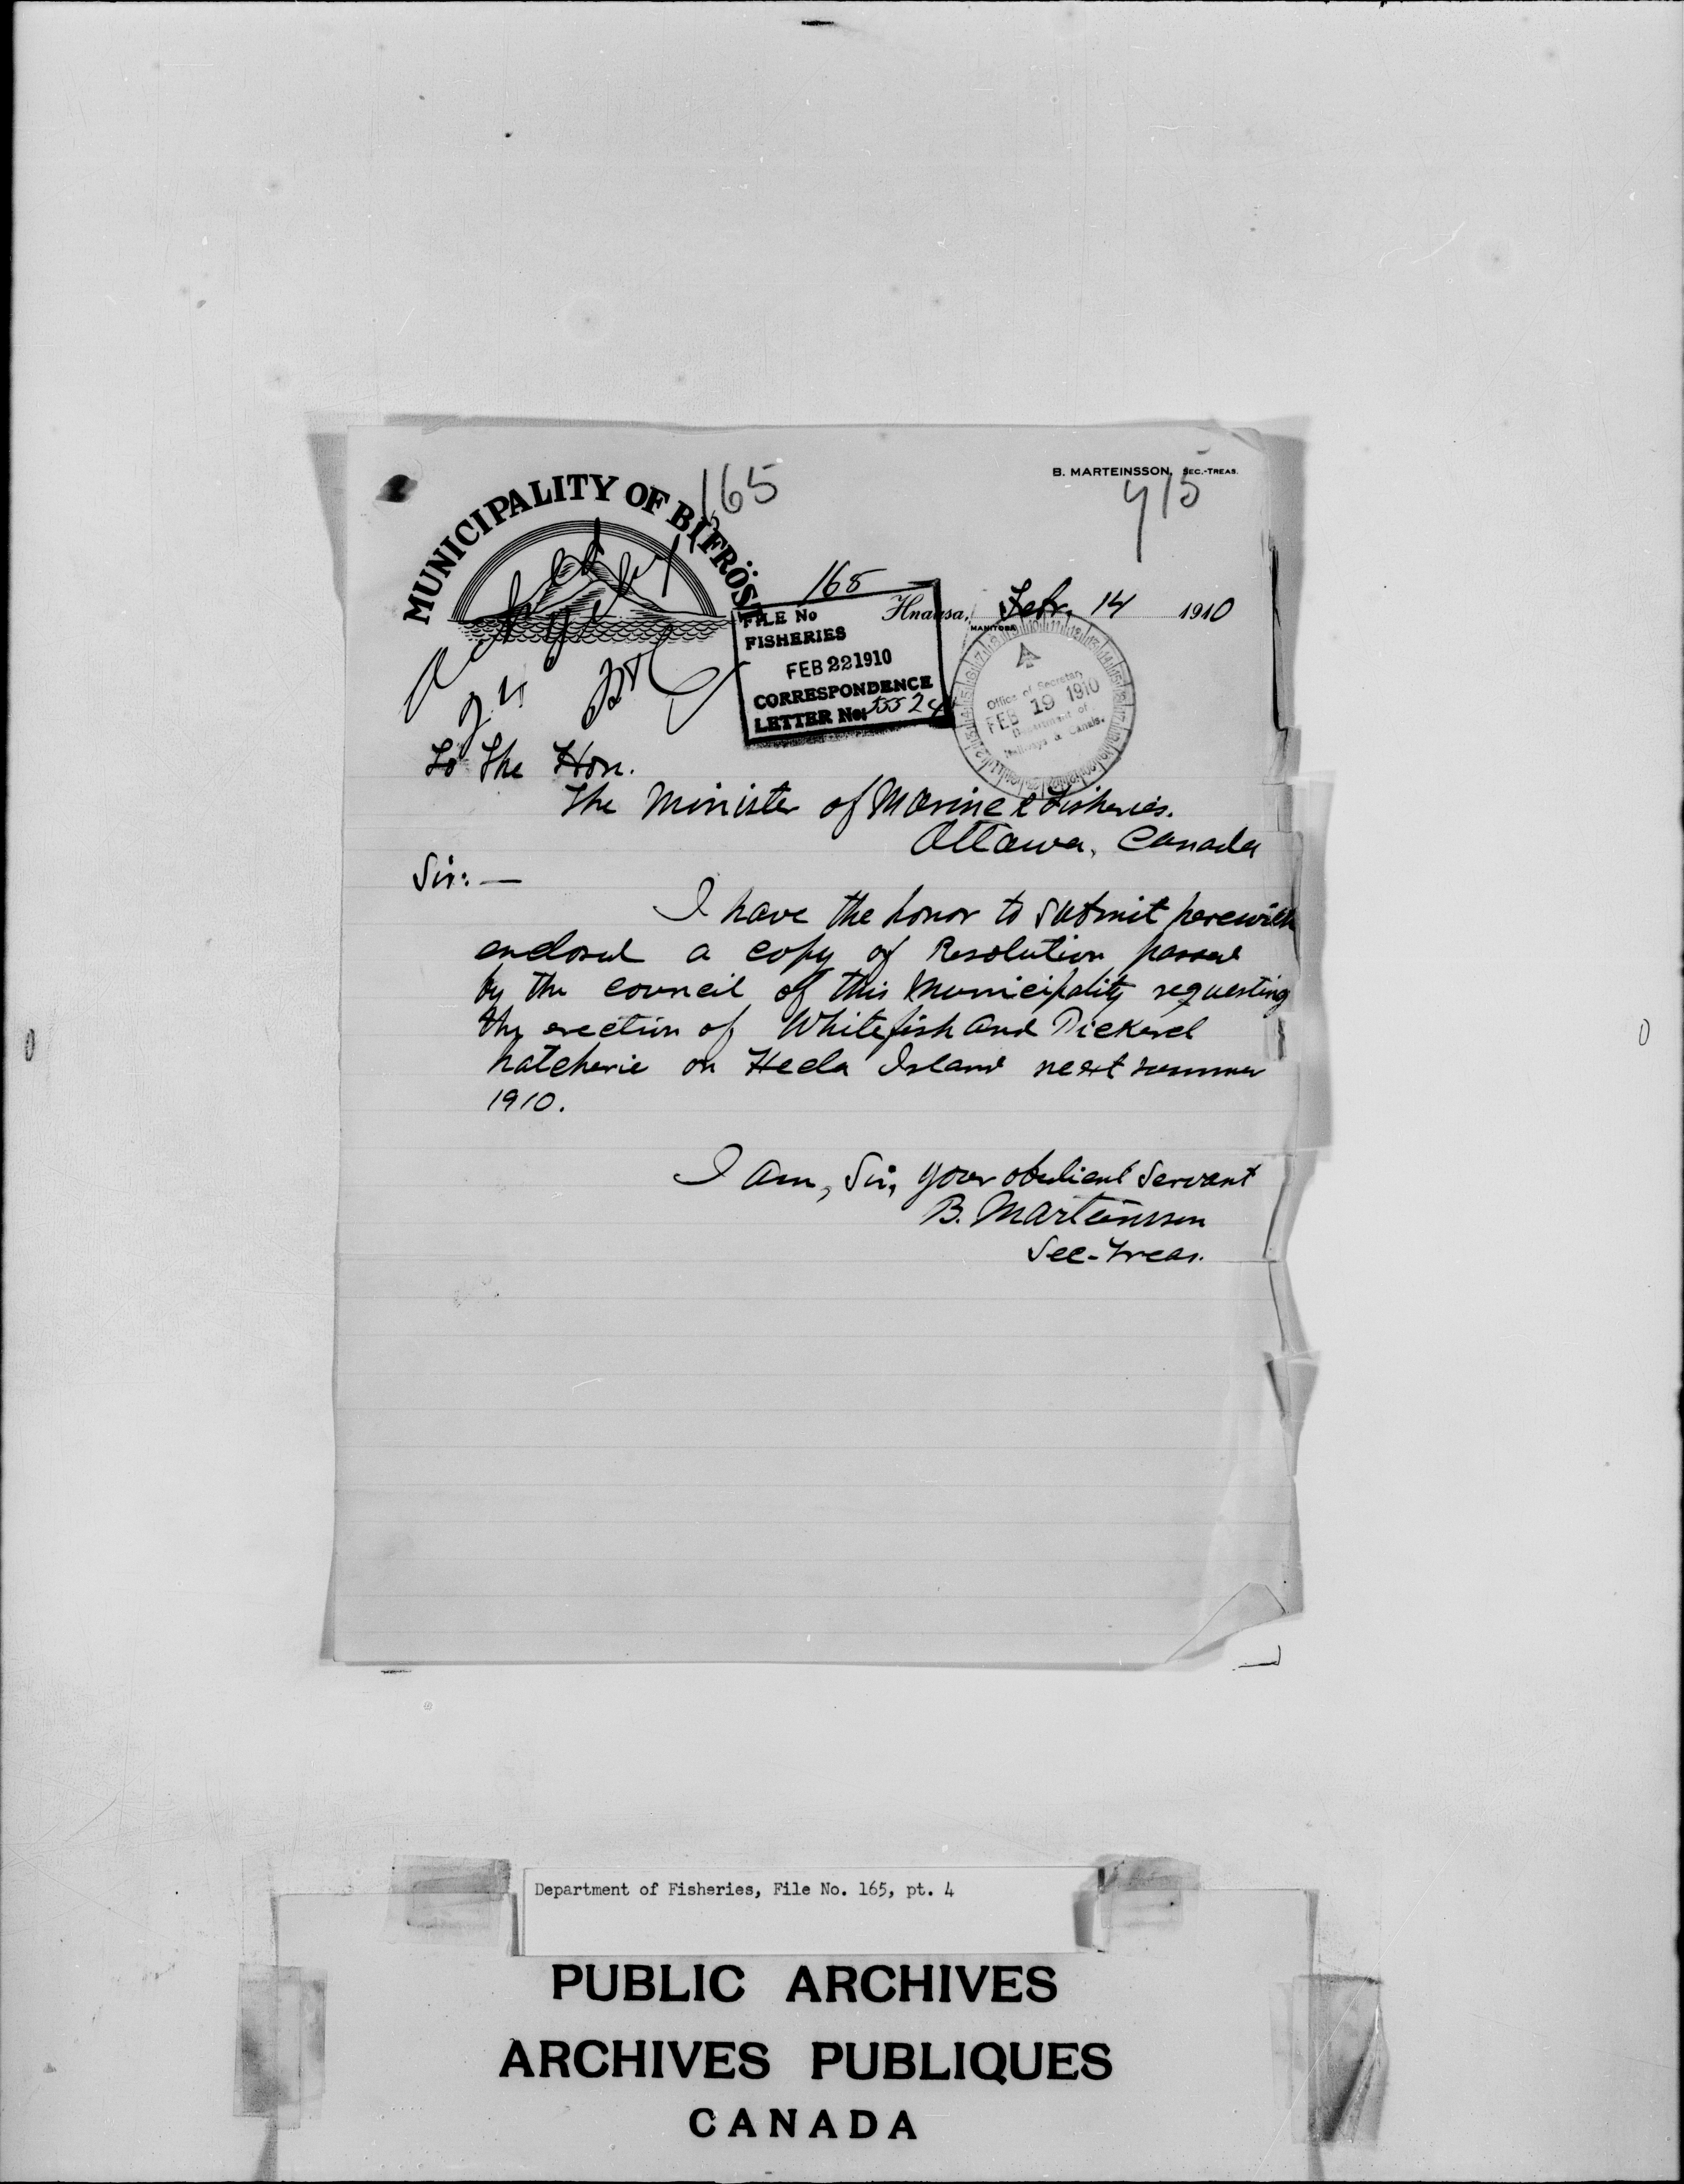 MUNICIPALITY OF BIFRÖST
165
B. MARTEINSSON, SEC.-TREAS.
715
165
Hnausa, MANITOBA Febr. 14 1910
FILE No
FISHERIES
FEB 22 1910
CORRESPONDENCE
LETTER No: 55524
Office of Secretary
FEB 19 1910
Department of
Railways & Canals.
To The Hon.
The Minister of Marine & Fisheries.
Ottawa, Canada
Sir:—
I have the honor to submit herewith
enclosed a copy of Resolution passed
by the council of this Municipality requesting
the erection of Whitefish and Pickerel
hatcherie on Hecla Island next summer
1910.
I am, Sir, your obedient servant
B. Marteinsson
Sec-Treas.
Department of Fisheries, File No. 165, pt. 4
PUBLIC ARCHIVES
ARCHIVES PUBLIQUES
CANADA